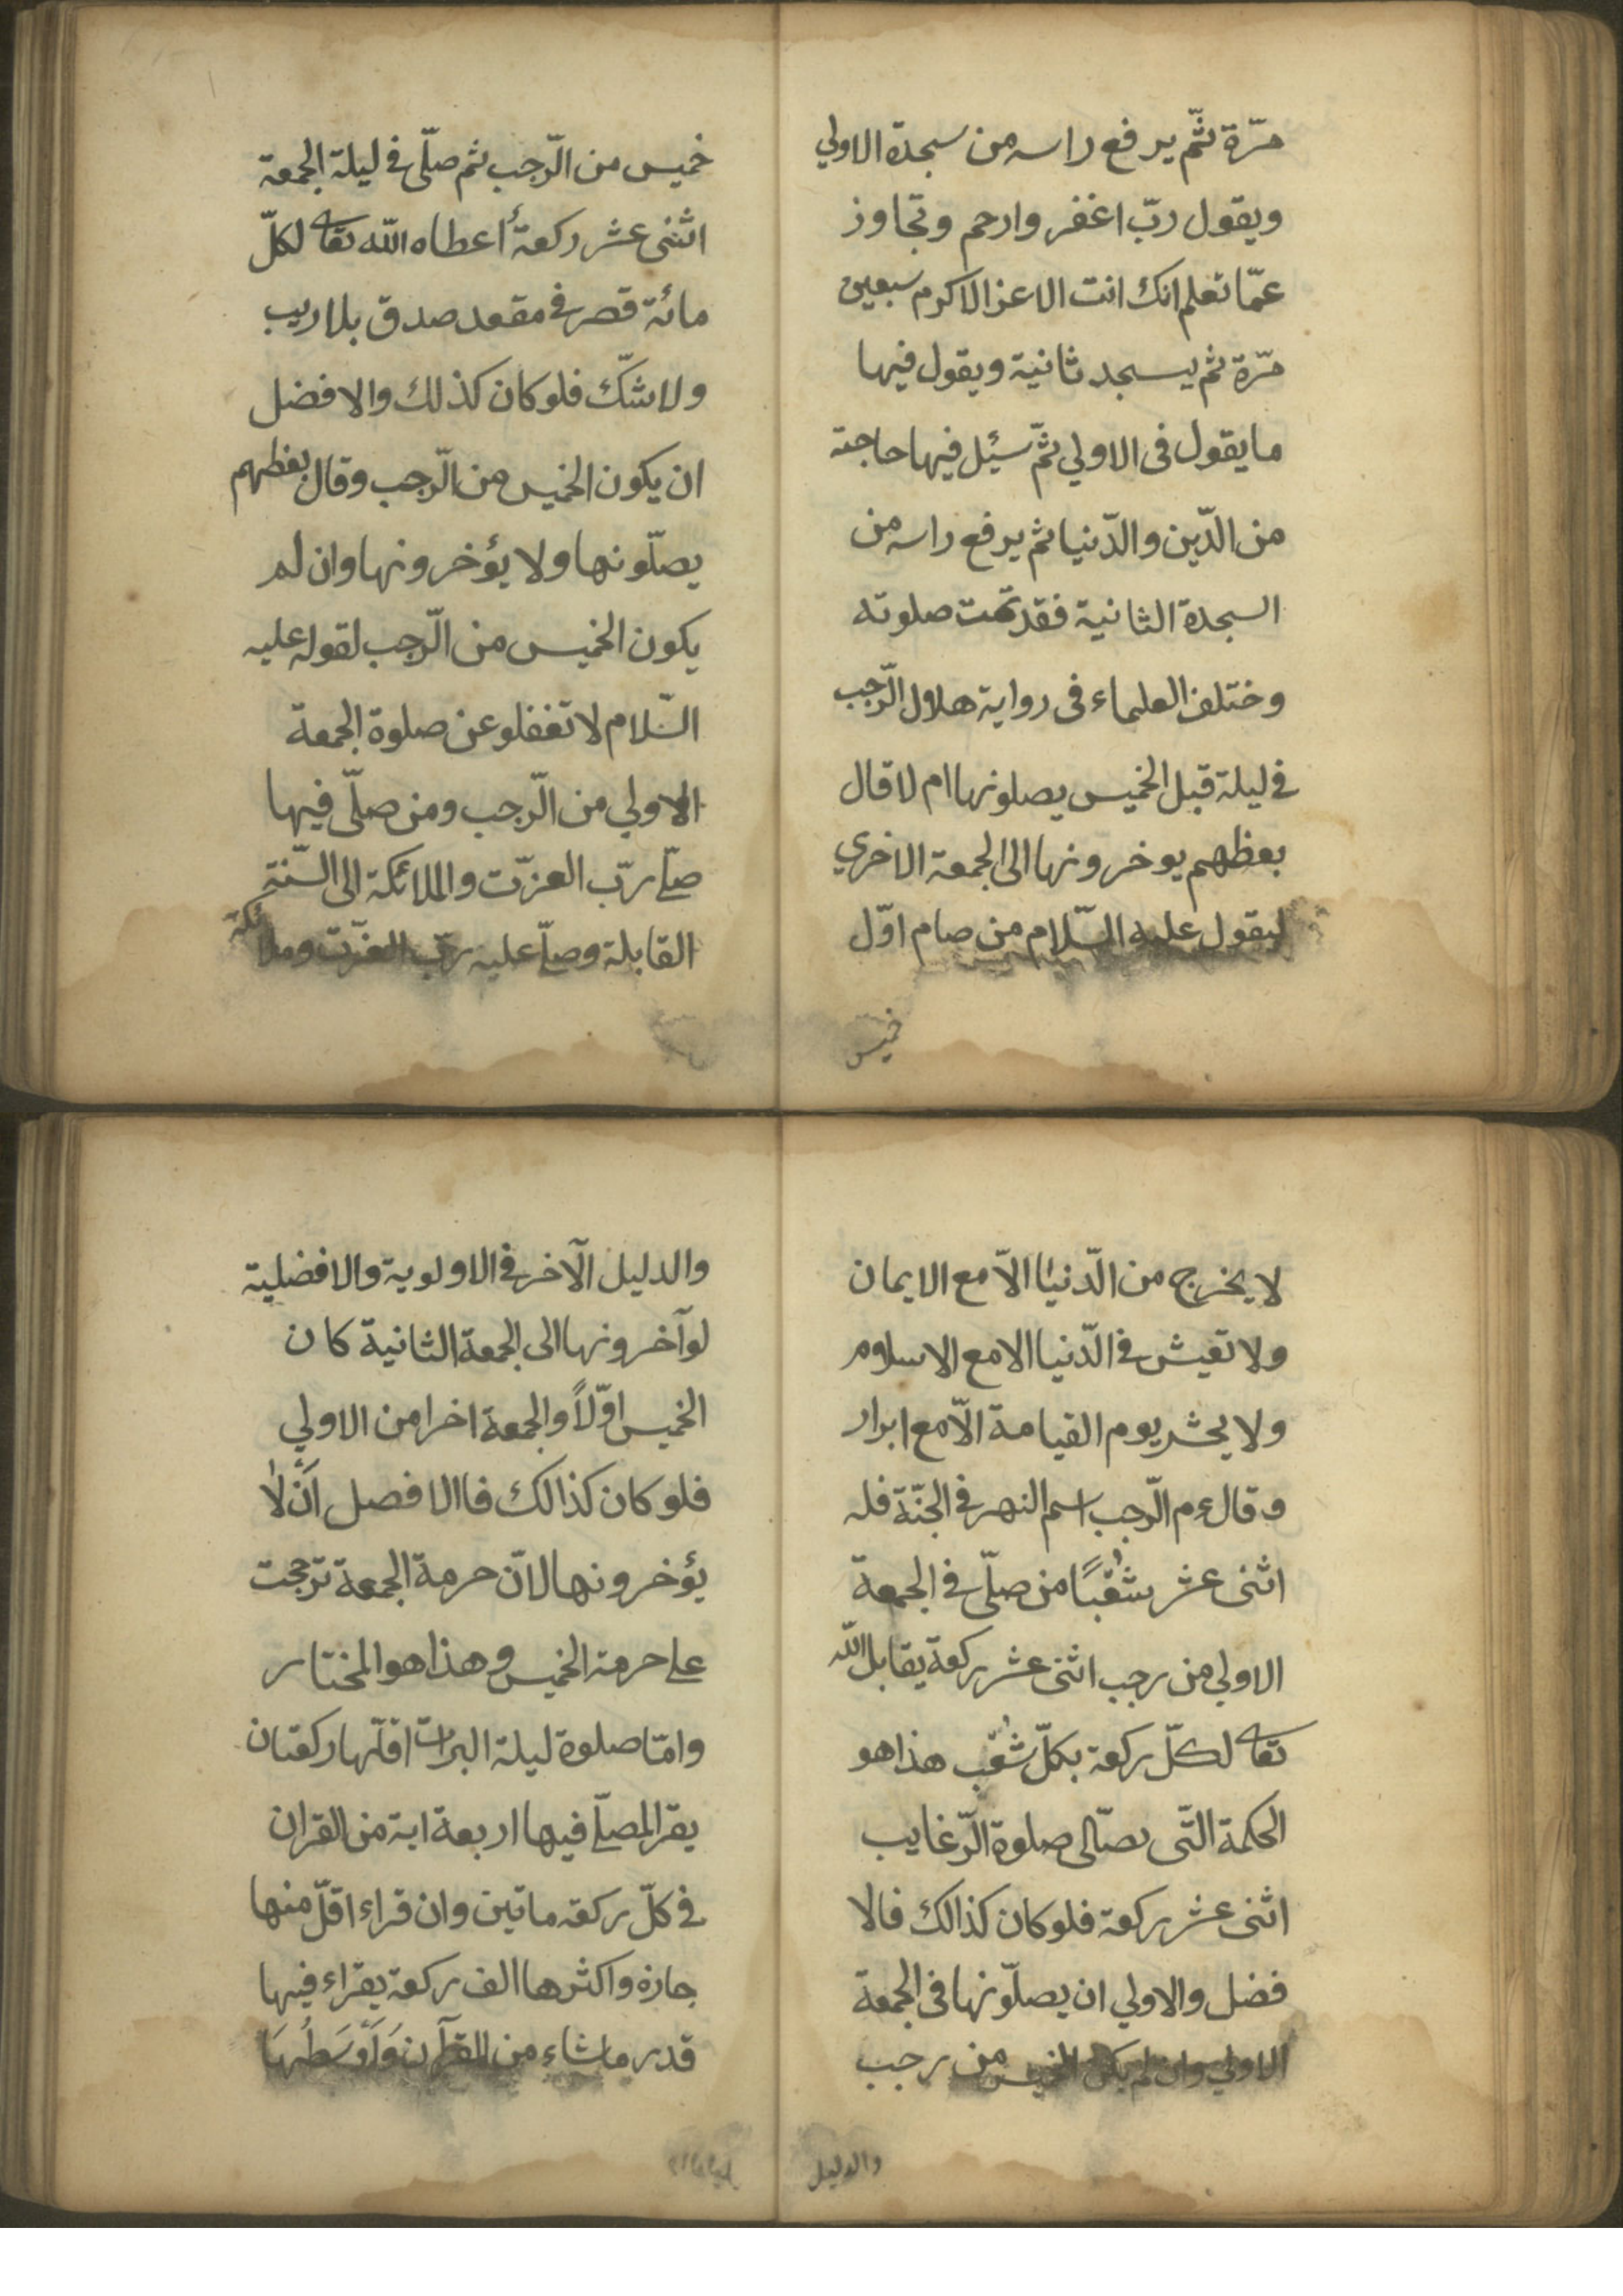 مرّة ثمّ يرفع راسه من سجدة الاولي
ويقول ربّ اغفر وارحم وتجاوز
عمّا تعلم انك انت الاعز الاكرم سبعين
مرّة ثم يسجد ثانية ويقول فيها
ما يقول فى الاولي ثمّ سئل فيها حاجته
من الدّين والدّنيا ثم يرفع راسه من
السجدة الثانية فقد تمت صلوته
وختلف العلماء فى رواية هلال الرّجب
فى ليلة قبل الخميس يصلونها ام لا قال
بعظهم يوخرونها الى الجمعة الاخري
ليقول عليه السّلام من صام اوّل
خميس
خميس من الرّجب ثم صلّى فى ليلة الجمعة
اثنى عشر ركعةً اعطاه الله تعا لكلّ
مائة قصر فى مقعد صدق بلا ريب
ولا شكّ فلو كان كذلك والافضل
ان يكون الخميس من الرّجب وقال بعظهم
يصلّونها ولا يؤخرونها وان لم
يكون الخميس من الرّجب لقوله عليه
السّلام لا تغفلو عن صلوة الجمعة
الاولي من الرّجب ومن صلّى فيها
صلّى ربّ العزّت والملائكة الى السّنة
القابلة وصلّى عليه ربّ العزّت وملائكة
لا يخرج من الدّنيا الاّ مع الايمان
ولا تعيش فى الدّنيا الا مع الاسلام
ولا يحشر يوم القيامة الاّ مع ابرار
وقال عم الرّجب اسم النهر فى الجنّة فله
اثنى عشر شُعْبًا من صلّى فى الجمعة
الاولي من رجب اثنى عشر ركعة يقابل الله
تعا لكلّ ركعة بكلّ شُعْب هذا هو
الحكمة التّى صلوة الرّغايب
اثنى عشر ركعة فلو كان كذالك فالا
فضل والاولي ان يصلّونها فى الجمعة
الاولي وان لم يكن الخميس من رجب
والدليل
والدليل الآخر فى الاولوية والافضلية
لو آخرونها الى الجمعة الثانية كان
الخميس اوّلاً والجمعة اخرا من الاولي
فلو كان كذالك فاالافصل اَنْ لا
يؤخرونها لانّ حرمة الجمعة ترجحت
على حرمة الخميس وهذا هو المختار
وامّا صلوة ليلة البرات اقلّها ركعتان
يقرا المصلّى فيها اربعة اية من القران
فى كلّ ركعة ماتين وان قراء اقلّ منها
جازه واكثرها الف ركعة يقراء فيها
قدر ما شاء من القرآن وَاَوْسَطُهَا